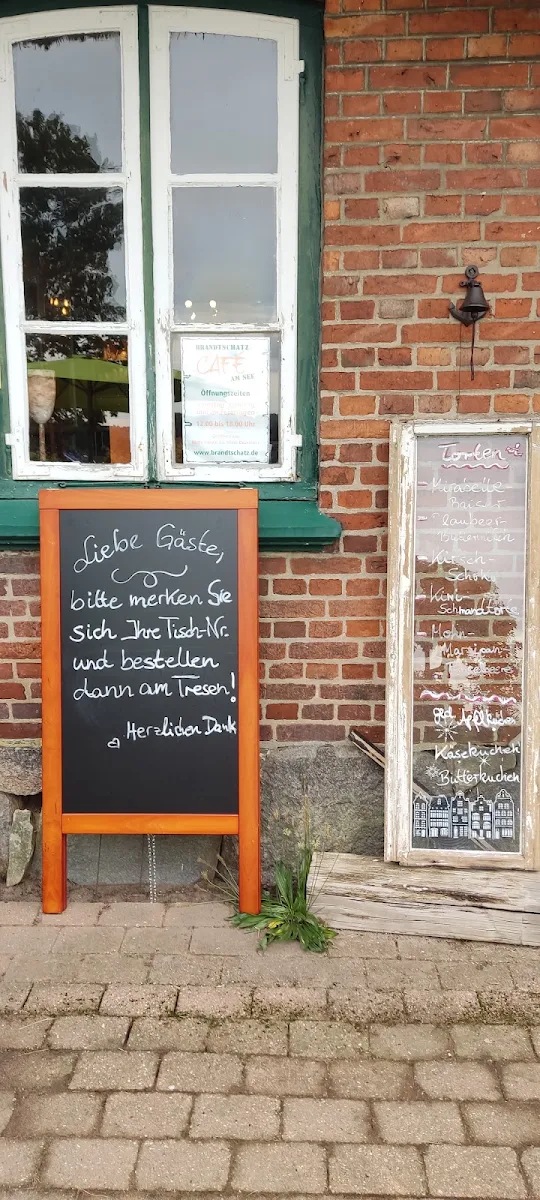 BRANDTSCHATZ
CAFE
AM SEE
Öffnungszeiten
12.00 bis 18.00 Uhr
www.brandtschatz.de
Liebe Gäste,
bitte merken Sie
sich Ihre Tisch-Nr.
und bestellen
dann am Tresen!
Herzlichen Dank
Torten
- Mirabelle
Baiser
Blaubeer-
- Kirsch-
Schoko
- Kiwi-
Schmandtorte
- Mohn-
Marzipan-
Apfelkuchen
Käsekuchen
Butterkuchen